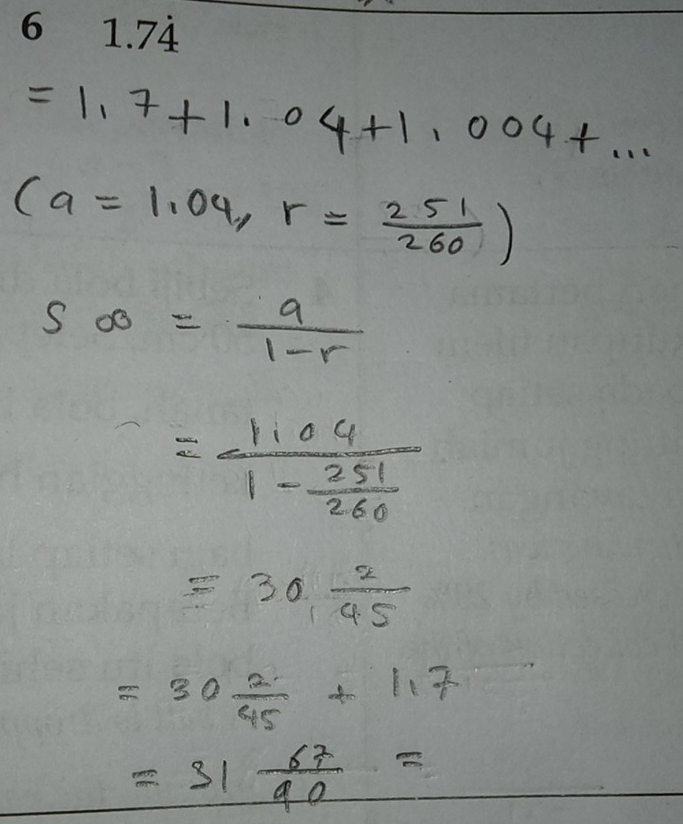 6 1.74̇
= 1.7 + 1.04 + 1.004 + ...
(a = 1.04, r = 251/260)
S∞ = a/(1-r)
= 1.04/(1 - 251/260)
= 30 2/45
= 30 2/45 + 1.7
= 31 67/90 =